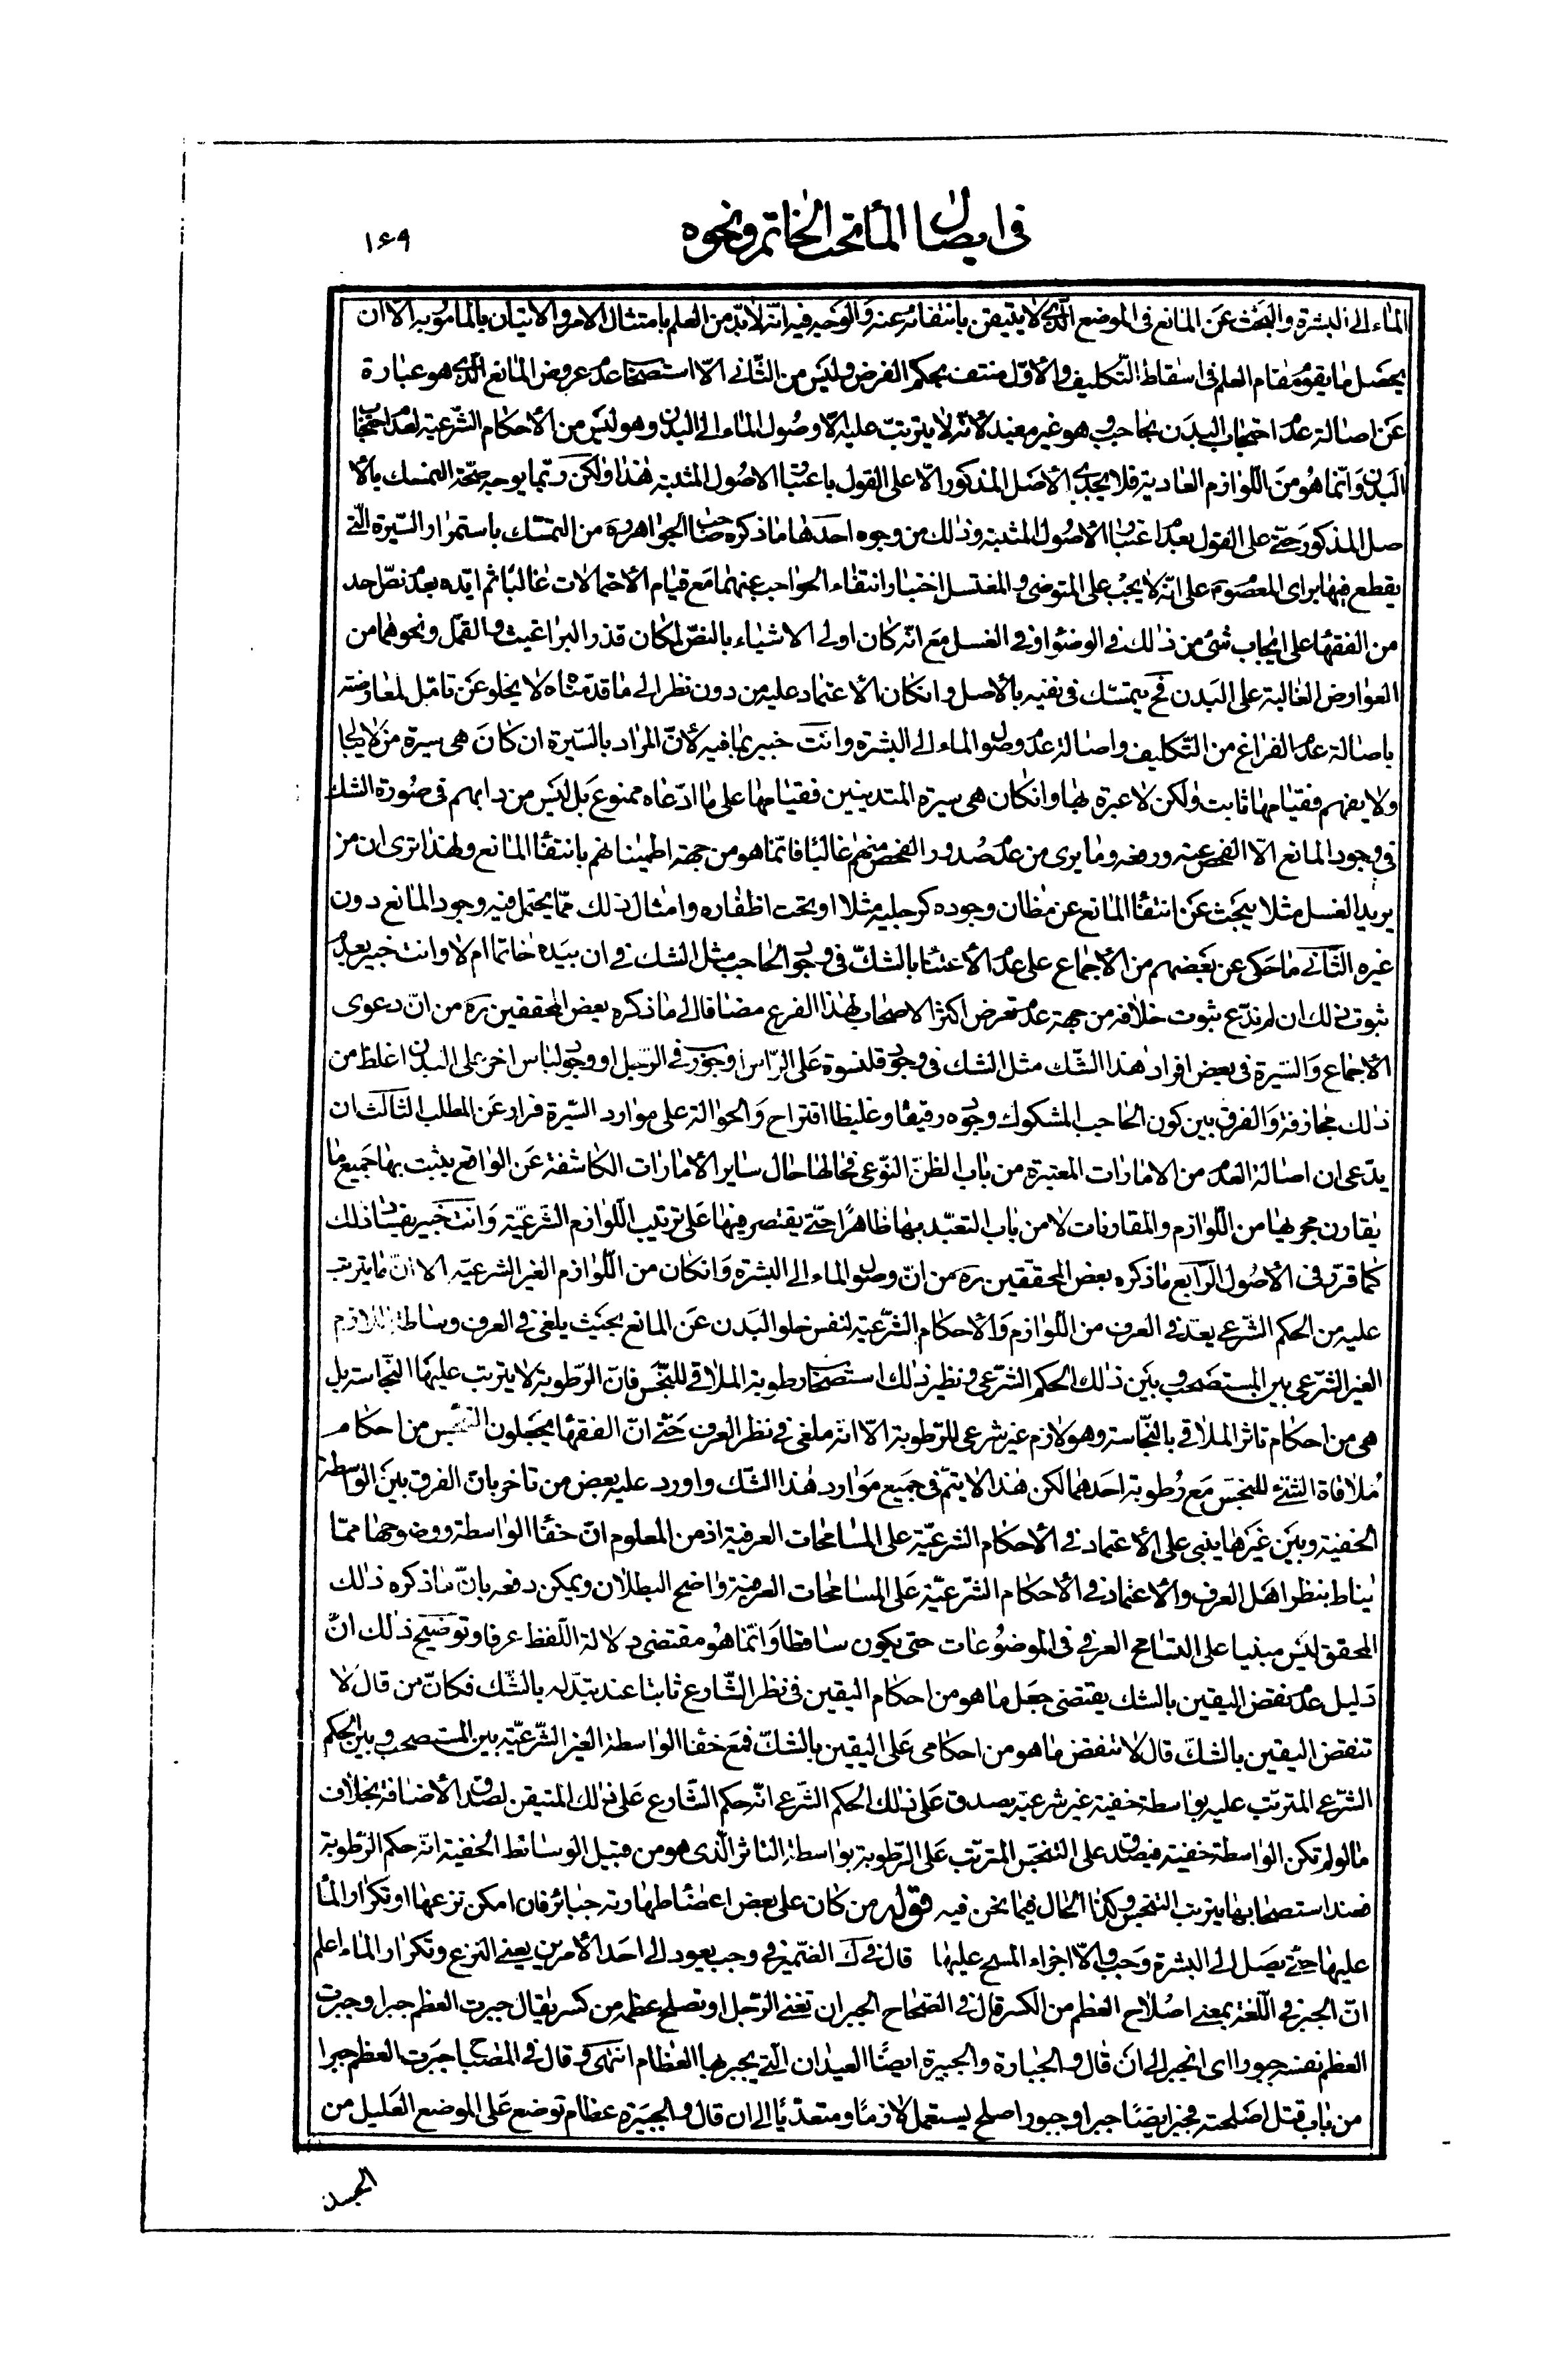 في ايصال الماء تحت الخاتم ونحوه
١۶٩
الماء الى البشرة والبحث عن المانع في الموضع الذي لا يتيقن بانتفائه عنه والوجه فيه انّه لا بدّ من العلم بامتثال الامر والاتيان بالمأمور به الّا ان
يحصل ما يقوم مقام العلم في اسقاط التّكليف والأوّل منتف بحكم الفرض وليس من الثّاني الّا استصحاب عدم عروض المانع الّذي هو عبارة
عن اصالة عدم احتجاب البدن بحاجب وهو غير مفيد لأنّه لا يترتب عليه الّا وصول الماء الى البدن وهو ليس من الأحكام الشّرعية لعدم احتجاب
البدن وانّما هو من اللّوازم العادية فلا يجدي الأصل المذكور الّا على القول باعتبار الاصول المثبتة هذا ولكن ربّما يوجه صحّة التمسك بالأ
صل المذكور حتّى على القول بعدم اعتبار الأصول المثبتة وذلك من وجوه احدها ما ذكره صاحب الجواهر ره من التمسّك باستمرار السّيرة الّتي
يقطع فيها براى المعصوم على انّه لا يجب على المتوضي والمغتسل اختبار انتفاء الحواجب عنهما مع قيام الأحتمالات غالبًا ثم ايّده بعدم نصّ احد
من الفقهاء على ايجاب شئ من ذلك في الوضوء او في الغسل مع انّه كان اولى الاشياء بالنصّ لمكان قذر البراغيث والقمّل ونحوهما من
العوارض الغالبة على البدن فح يتمسّك في نفيه بالأصل وانكان الأعتماد عليه من دون نظر الى ما قدّمناه لا يخلو عن تامّل لمعارضته
باصالة عدم الفراغ من التّكليف واصالة عدم وصول الماء الى البشرة وانت خبير بما فيه لأنّ المراد بالسّيرة ان كان هي سيرة من لا يبالي
ولا يفهم فقيامها ثابت ولكن لا عبرة بها وانكان هي سيرة المتدينين فقيامها على ما ادّعاه ممنوع بل ليس من دابهم في صورة الشك
في وجود المانع الّا الفحص عنه ورفعه وما يرى من عدم صدور الفحص منهم غالبًا فانّما هو من جهة اطمينانهم بانتفاء المانع ولهذا ترى ان من
يريد الغسل مثلا يبحث عن انتفاء المانع عن مظان وجوده كرجليه مثلا او تحت اظفاره وامثال ذلك ممّا يحتمل فيه وجود المانع دون
غيره الثّاني ما حكى عن بعضهم من الأجماع على عدم الأعتناء بالشكّ في وجود الحاجب مثل الشك في ان بيده خاتما ام لا وانت خبير بعدم
ثبوت ذلك ان لم ندّع ثبوت خلافه من جهة عدم تعرض اكثر الاصحاب لهذا الفرع مضافا الى ما ذكره بعض المحققين ره من انّ دعوى
الأجماع والسّيرة في بعض افراد هذا الشّك مثل الشك في وجود قلنسوة على الرّاس او جورب في الرّجل او وجود لباس اخر على البدن اغلظ من
ذلك مجازفة والفرق بين كون الحاجب المشكوك وجوده رقيقًا وغليظا اقتراح والحوالة على موارد السّيرة فرار عن المطلب الثّالث ان
يدّعى ان اصالة العدم من الامارات المعتبرة من باب الظنّ النّوعي فحالها حال ساير الأمارات الكاشفة عن الواقع يثبت بها جميع ما
يقارن مجريها من اللّوازم والمقارنات لا من باب التعبّد بها ظاهرًا حتّى يقتصر فيها على ترتيب اللّوازم الشّرعيّة وانت خبير بفساد ذلك
كما قرّر في الأصول الرّابع ما ذكره بعض المحققين ره من انّ وصول الماء الى البشرة وانكان من اللّوازم الغير الشرعيّه الا انّ ما يترتب
عليه من الحكم الشرعي يعدّ في العرف من اللّوازم والأحكام الشّرعيّة لنفس خلو البدن عن المانع بحيث يلغى في العرف وساطة اللّازم
الغير الشّرعي بين المستصحب وبين ذلك الحكم الشّرعي ونظير ذلك استصحاب رطوبة الملاقي للنّجس فانّ الرّطوبة لا يترتب عليها النّجاسة بل
هي من احكام تاثر الملاقي بالنّجاسة وهو لازم غير شرعي للرّطوبة الّا انّه ملغى في نظر العرف حتّى انّ الفقهاء يجعلون التنجّس من احكام
ملاقاة الشّئ للنجس مع رطوبة احدهما لكن هذا الا يتمّ في جميع موارد هذا الشّك واورد عليه بعض من تاخر بانّ الفرق بين الواسطة
الخفية وبين غيرها يبنى على الأعتماد في الأحكام الشرعيّة على المسامحات العرفية اذ من المعلوم انّ خفاء الواسطة ووضوحها ممّا
يناط بنظر اهل العرف والأعتماد في الأحكام الشّرعيّة على المسامحات العرفية واضح البطلان ويمكن دفعه بانّ ما ذكره ذلك
المحقق ليس مبنيا على التسامح العرفي في الموضوعات حتى يكون ساقطا وانّما هو مقتضى دلالة اللّفظ عرفا وتوضيح ذلك انّ
دليل عدم نقض اليقين بالشك يقتضي جعل ما هو من احكام اليقين في نظر الشّارع ثابتا عند تبدّله بالشّك فكانّ من قال لا
تنقض اليقين بالشكّ قال لا تنقض ما هو من احكامي على اليقين بالشكّ فمع خفاء الواسطة الغير الشّرعيّة بين المستصحب وبين الحكم
الشّرعي المترتب عليه بواسطة خفية غير شرعيّة يصدق على ذلك الحكم الشّرعي انّه حكم الشّارع على ذلك المتيقن لصدق الأضافة بخلاف
ما لو لم تكن الواسطة خفية فيصدق على التنجّس المترتب على الرّطوبة بواسطة التاثر الّذي هو من قبيل الوسائط الخفية انّه حكم الرّطوبة
فعند استصحابها يترتب التنجس وكذا الحال فيما نحن فيه قوله من كان على بعض اعضاء طهارته جبائر فان امكن نزعها او تكرار الماء
عليها حتّى يصل الى البشرة وجب والّا اجزاه المسح عليها قال في ك الضّمير في وجب يعود الى احد الأمرين يعني النزع وتكرار الماء اعلم
انّ الجبر في اللّغة بمعنى اصلاح العظم من الكسر قال في الصّحاح الجبر ان تغني الرّجل او تصلح عظمه من كسر يقال جبرت العظم جبرا وجبرت
العظم نفسه جبورا اى انجبر الى ان قال والجبارة والجبيرة ايضًا العيدان الّتي يجبر بها العظام انتهى وقال في المصباح جبرت العظم جبرا
من باب قتل اصلحته فجبر ايضًا جبرا وجبورا صلح يستعمل لازمًا ومتعدّيًا الى ان قال والجبيرة عظام توضع على الموضع العليل من
الجسد